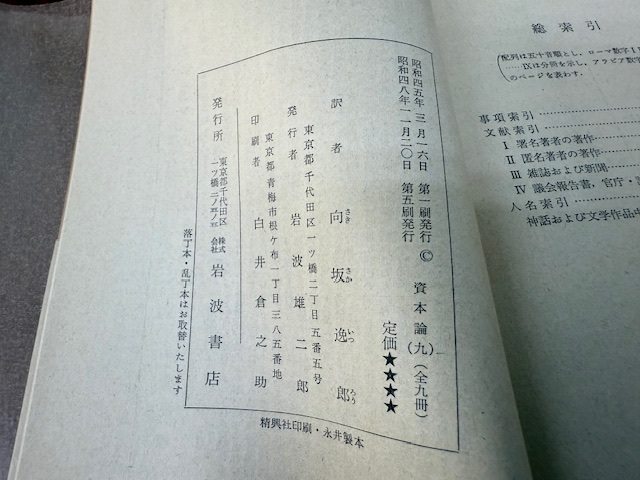 昭和四五年三月一六日　第一刷発行 ©
昭和四八年一一月二〇日　第五刷発行
資本論（九）（全九冊）
定価★★★★
訳者　向坂逸郎
さき さか いつ ろう
東京都千代田区一ツ橋二丁目五番五号
発行者　岩波雄二郎
東京都青梅市根ケ布一丁目三八五番地
印刷者　白井倉之助
発行所　東京都千代田区
一ツ橋二ノ五ノ五
株式会社　岩波書店
落丁本・乱丁本はお取替いたします
精興社印刷・永井製本
総索引
配列は五十音順とし，ローマ数字I
……IXは分冊を示し，アラビア数字
のページを表わす．
事項索引
文献索引
I 署名著者の著作
II 匿名著者の著作
III 雑誌および新聞
IV 議会報告書，官庁・
人名索引
神話および文学作品